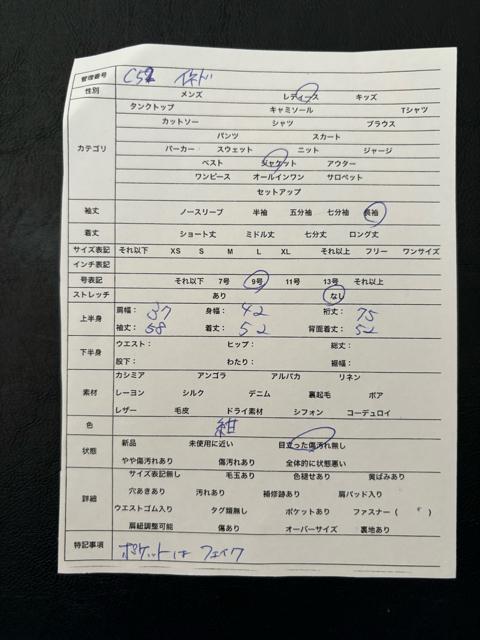 管理番号 C52 イネド
性別 メンズ レディース キッズ
タンクトップ キャミソール Tシャツ
カットソー シャツ ブラウス
パンツ スカート
カテゴリ パーカー スウェット ニット ジャージ
ベスト ジャケット アウター
ワンピース オールインワン サロペット
セットアップ
袖丈 ノースリーブ 半袖 五分袖 七分袖 長袖
着丈 ショート丈 ミドル丈 七分丈 ロング丈
サイズ表記 それ以下 XS S M L XL それ以上 フリー ワンサイズ
インチ表記
号表記 それ以下 7号 9号 11号 13号 それ以上
ストレッチ あり なし
上半身 肩幅: 37 身幅: 42 裄丈: 75
袖丈: 58 着丈: 52 背面着丈: 52
下半身 ウエスト: ヒップ: 総丈:
股下: わたり: 裾幅:
カシミア アンゴラ アルパカ リネン
素材 レーヨン シルク デニム 裏起毛 ボア
レザー 毛皮 ドライ素材 シフォン コーデュロイ
色 紺
状態 新品 未使用に近い 目立った傷汚れ無し
やや傷汚れあり 傷汚れあり 全体的に状態悪い
サイズ表記無し 毛玉あり 色褪せあり 黄ばみあり
詳細 穴あきあり 汚れあり 補修跡あり 肩パッド入り
ウエストゴム入り タグ類無し ポケットあり ファスナー( )
肩紐調整可能 傷あり オーバーサイズ 裏地あり
特記事項 ポケットは フェイク